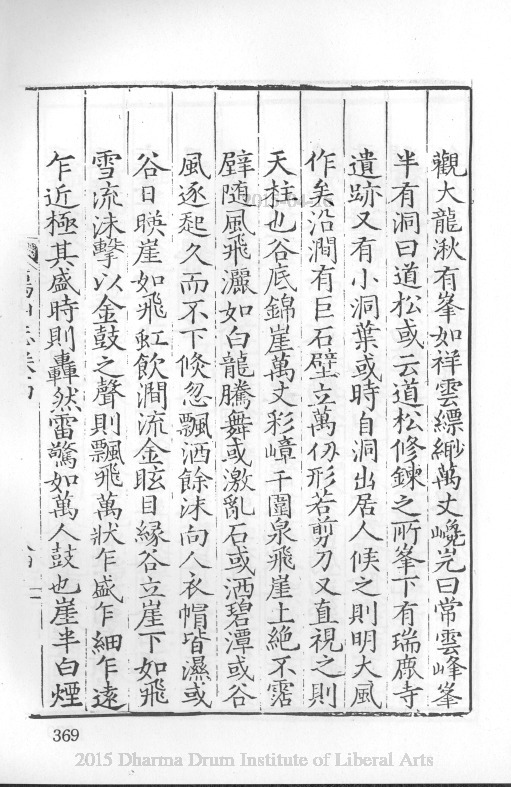 觀大龍湫有峯如祥雲縹緲萬丈巉岏曰常雲峰峯
半有洞曰道松或云道松修鍊之所峯下有瑞鹿寺
遺跡又有小洞葉或時自洞出居人候之則明大風
作矣沿澗有巨石壁立萬仞形若剪刀又直視之則
天柱也谷底錦崖萬丈彩嶂千圍泉飛崖上絶不霑
壁随風飛灑如白龍騰舞或激亂石或洒碧潭或谷
風逐起久而不下倐忽飄洒餘沫向人衣帽皆濕或
谷日暎崖如飛虹飲澗流金眩目縁谷立崖下如飛
雪流沫擊以金鼓之聲則飄飛萬狀乍盛乍細乍遠
乍近極其盛時則轟然雷驚如萬人鼓也崖半白煙
369
2015 Dharma Drum Institute of Liberal Arts